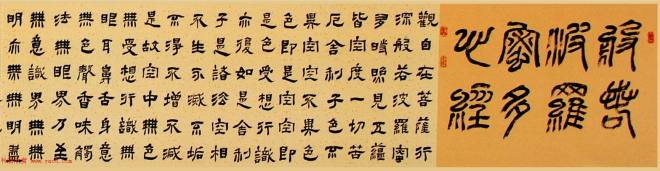 般若
波羅
蜜多
心經
觀自在菩薩行
深般若波羅蜜
多時照見五蘊
皆空度一切苦
厄舍利子色不
異空空不異色
色即是空空即
是色受想行識
亦復如是舍利
子是諸法空相
不生不滅不垢
不淨不增不減
是故空中無色
無受想行識無
眼耳鼻舌身意
無色聲香味觸
法無眼界乃至
無意識界無無
明亦無無明盡